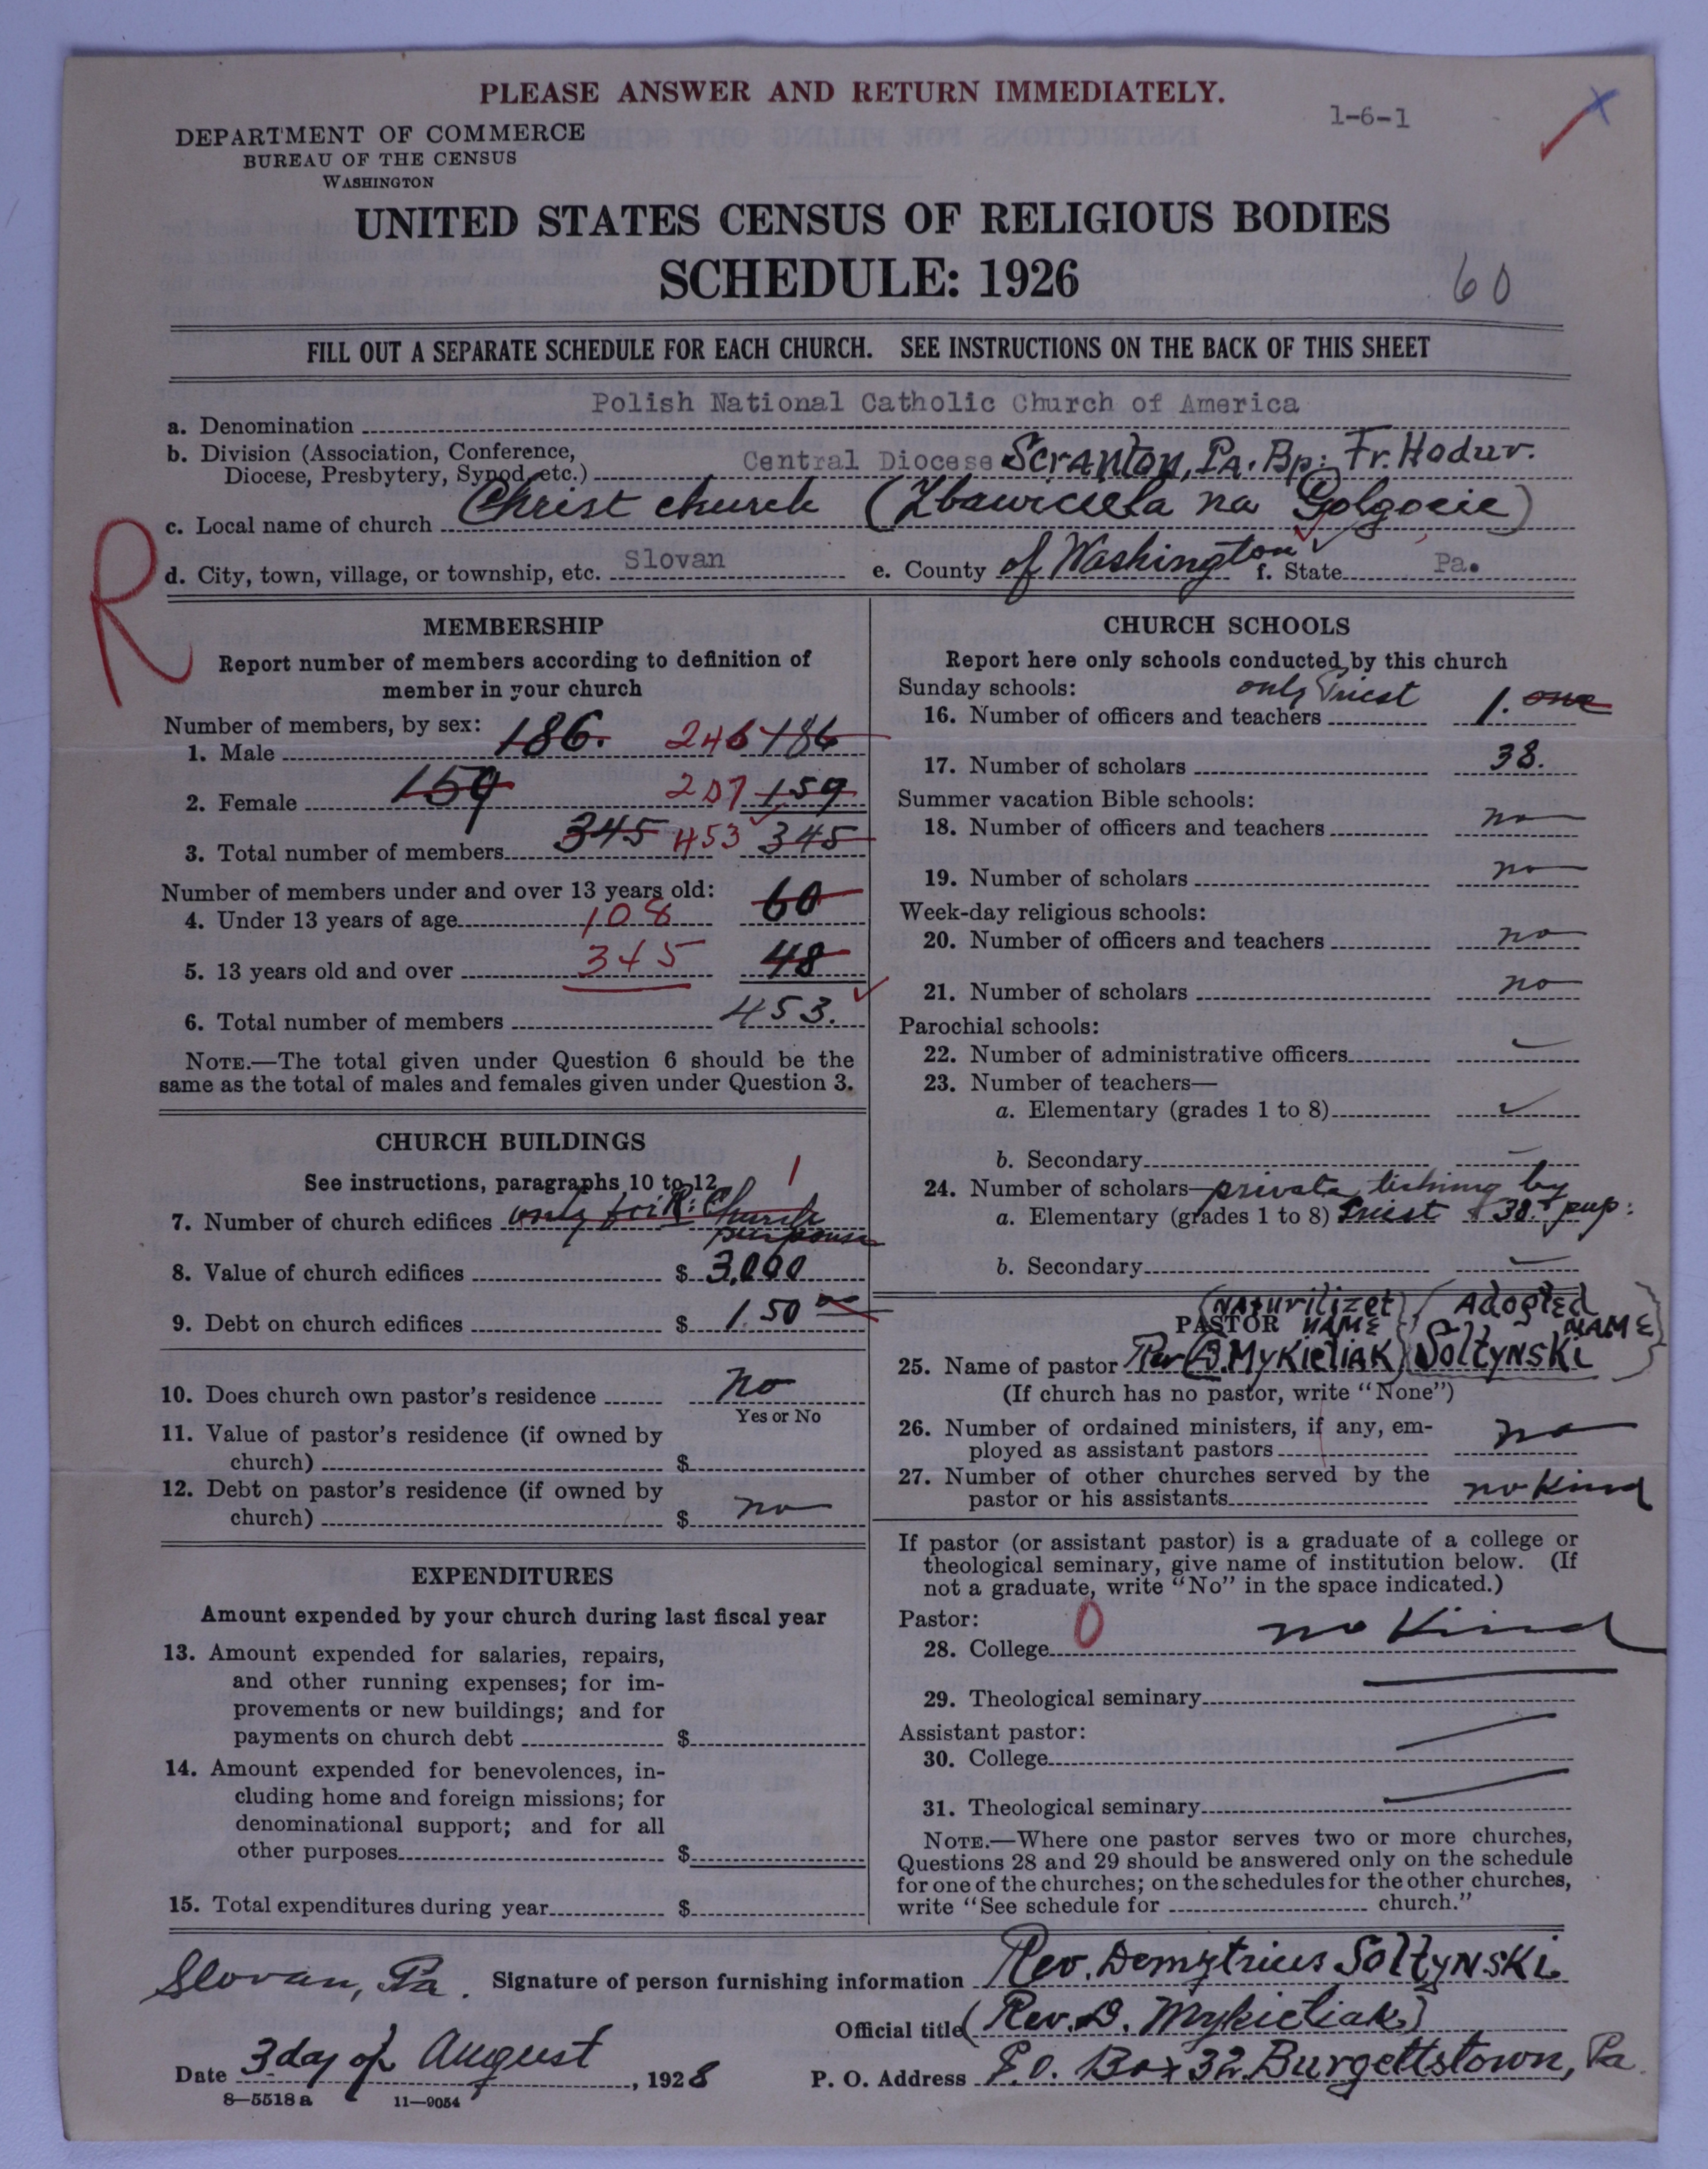 PLEASE ANSWER AND RETURN IMMEDIATELY.
1-6-1
DEPARTMENT OF COMMERCE
BUREAU OF THE CENSUS
WASHINGTON
UNITED STATES CENSUS OF RELIGIOUS BODIES
SCHEDULE: 1926
60
FILL OUT A SEPARATE SCHEDULE FOR EACH CHURCH. SEE INSTRUCTIONS ON THE BACK OF THIS SHEET
a. Denomination Polish National Catholic Church of America
b. Division (Association, Conference,
Diocese, Presbytery, Synod, etc.) Central Diocese Scranton, Pa. Bp: Fr. Hodur.
c. Local name of church Christ church (Zbawiciela na Golgocie)
R
d. City, town, village, or township, etc. Slovan e. County of Washington f. State Pa.
MEMBERSHIP
Report number of members according to definition of
member in your church
Number of members, by sex:
1. Male 186. 246 186
2. Female 159 207 159
3. Total number of members 345 453 345
Number of members under and over 13 years old:
4. Under 13 years of age 108 60
5. 13 years old and over 345 48
6. Total number of members 453.
NOTE.—The total given under Question 6 should be the
same as the total of males and females given under Question 3.
CHURCH BUILDINGS
See instructions, paragraphs 10 to 12
1
7. Number of church edifices only for R: Church
purpouse
8. Value of church edifices $ 3,000
9. Debt on church edifices $ 1.50 00
10. Does church own pastor's residence no
Yes or No
11. Value of pastor's residence (if owned by
church) $
12. Debt on pastor's residence (if owned by
church) $ no
EXPENDITURES
Amount expended by your church during last fiscal year
13. Amount expended for salaries, repairs,
and other running expenses; for im-
provements or new buildings; and for
payments on church debt $
14. Amount expended for benevolences, in-
cluding home and foreign missions; for
denominational support; and for all
other purposes $
15. Total expenditures during year $
CHURCH SCHOOLS
Report here only schools conducted by this church
Sunday schools: only Priest
16. Number of officers and teachers 1. one
17. Number of scholars 38.
Summer vacation Bible schools:
18. Number of officers and teachers no
19. Number of scholars no
Week-day religious schools:
20. Number of officers and teachers no
21. Number of scholars no
Parochial schools:
22. Number of administrative officers
23. Number of teachers—
a. Elementary (grades 1 to 8)
b. Secondary
24. Number of scholars— private tishing by
a. Elementary (grades 1 to 8) Priest 38. pup:
b. Secondary
(Naturilizet (Adopted
PASTOR NAME NAME
25. Name of pastor Rev D. Mykietiak) Soltynski
(If church has no pastor, write "None")
26. Number of ordained ministers, if any, em-
ployed as assistant pastors no
27. Number of other churches served by the
pastor or his assistants no Kind
If pastor (or assistant pastor) is a graduate of a college or
theological seminary, give name of institution below. (If
not a graduate, write "No" in the space indicated.)
Pastor:
28. College 0 no Kind
29. Theological seminary
Assistant pastor:
30. College
31. Theological seminary
NOTE.—Where one pastor serves two or more churches,
Questions 28 and 29 should be answered only on the schedule
for one of the churches; on the schedules for the other churches,
write "See schedule for church."
Slovan, Pa. Signature of person furnishing information Rev. Demytrius Soltynski
Official title (Rev. D. Mykietiak)
Date 3 day of August, 1928 P. O. Address P.O. Box 32 Burgettstown, Pa.
8—5518 a 11—9054